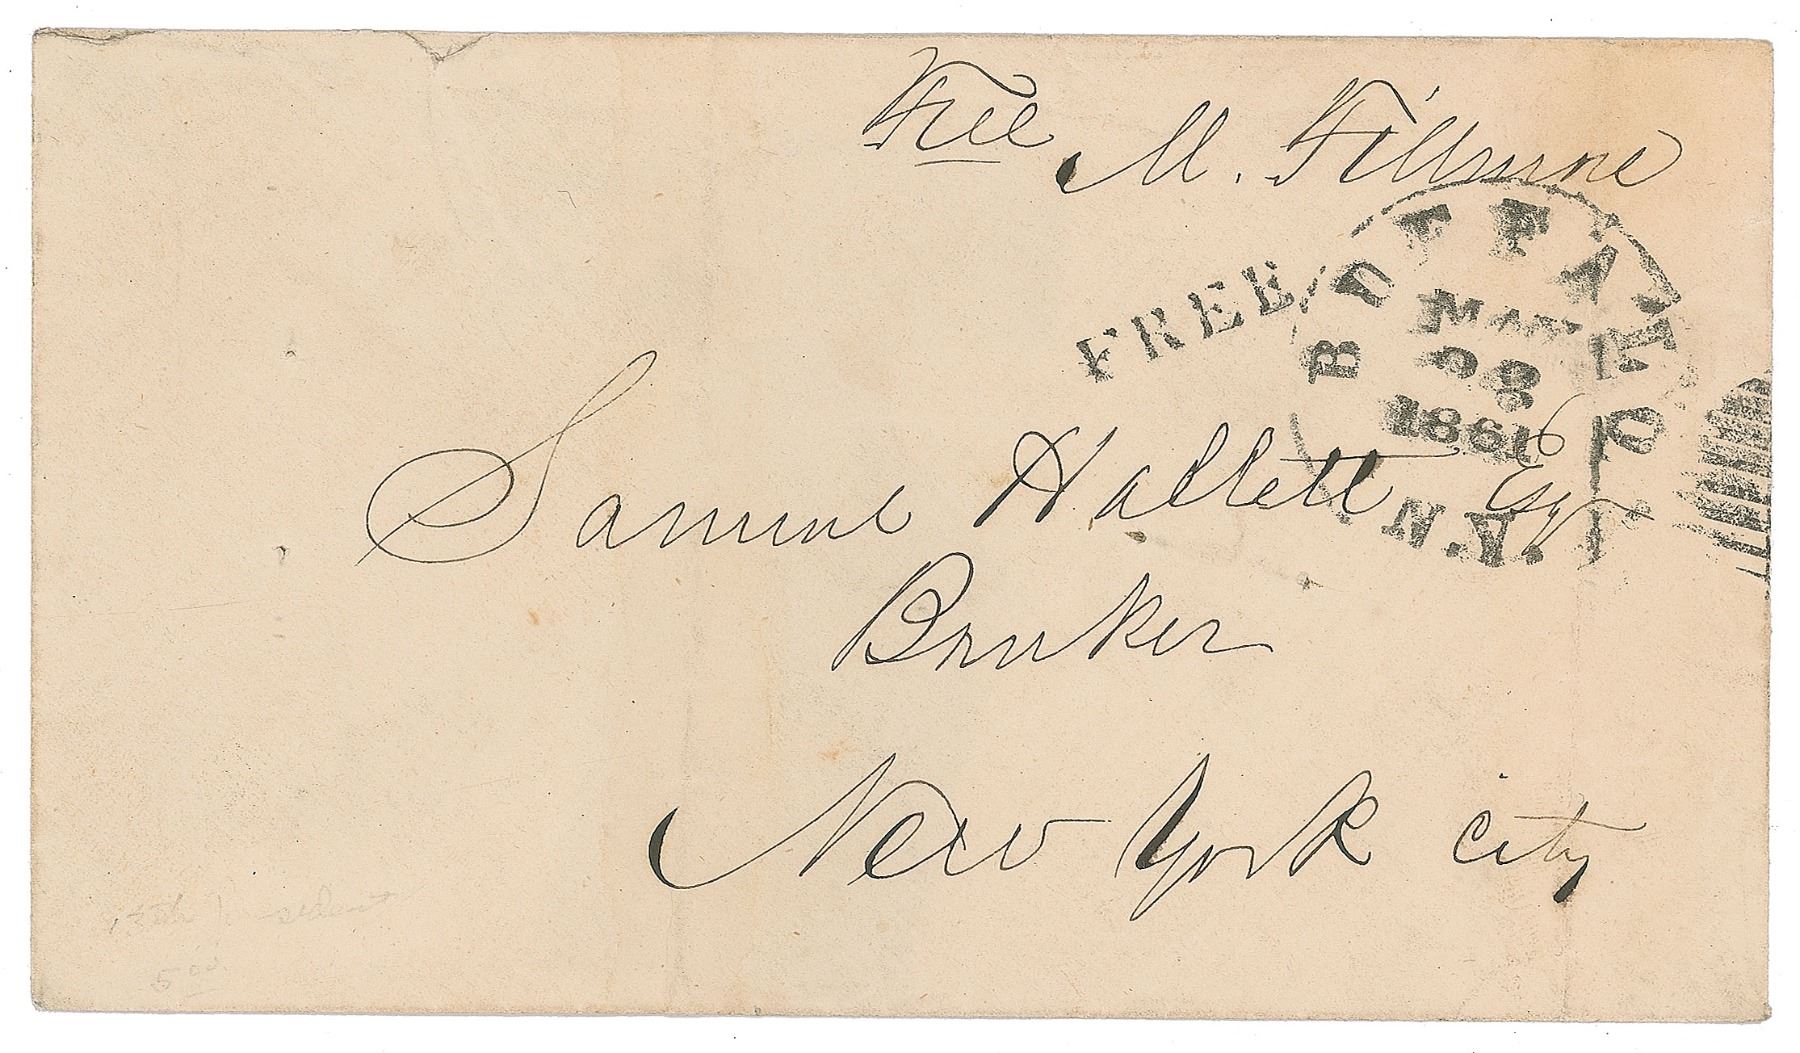 Free M. Fillmore
FREE
BUFFALO N.Y.
MAY
1861
Samuel Hallett Esq
Banker
New York city
13th President
5 00